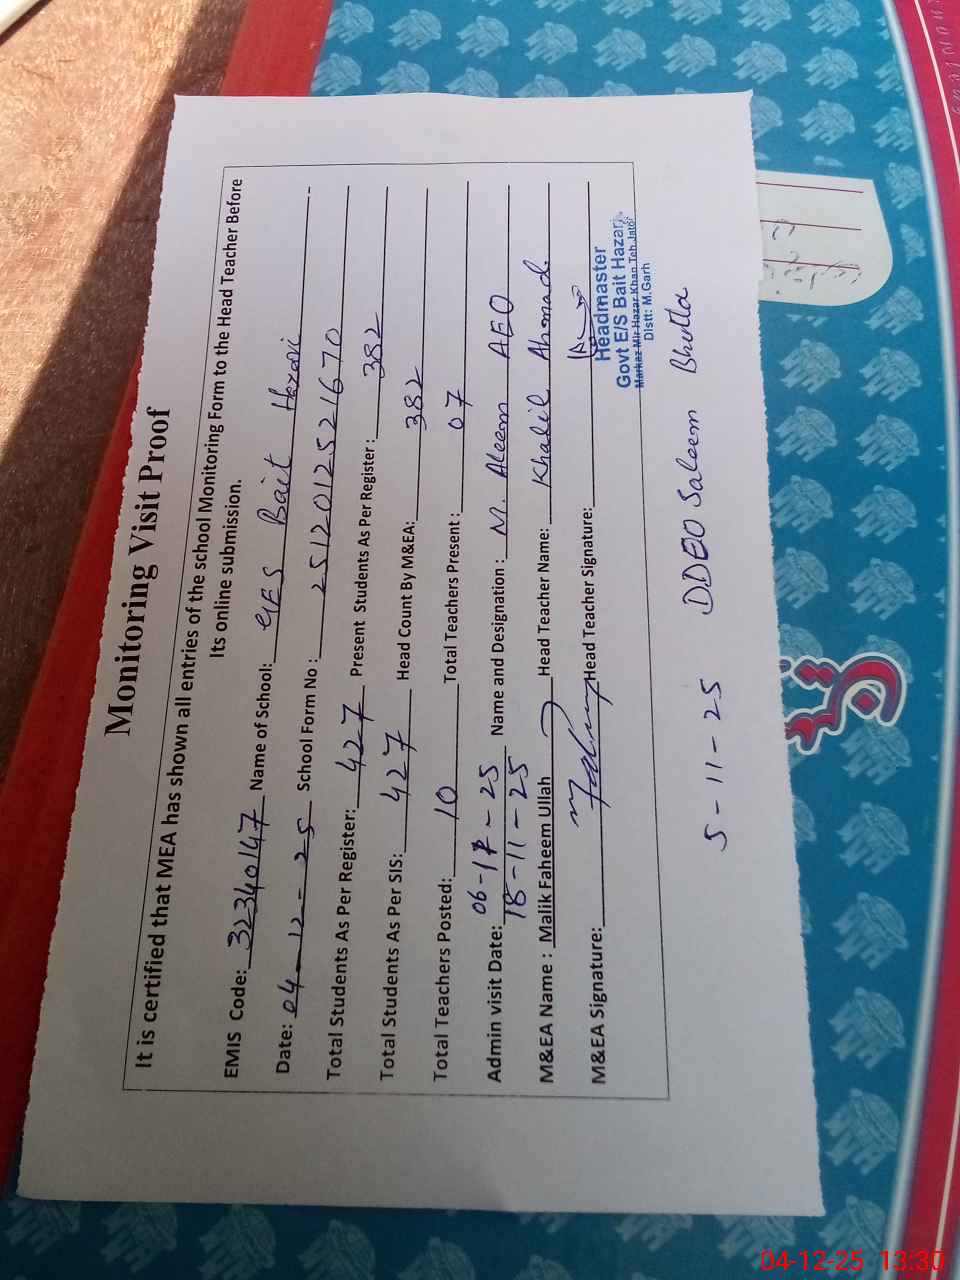 Monitoring Visit Proof
It is certified that MEA has shown all entries of the school Monitoring Form to the Head Teacher Before
Its online submission.
EMIS Code: 32340147 Name of School: G/E/S Bait Hazari
Date: 04-12-25 School Form No: 2512012521670
Total Students As Per Register: 427 Present Students As Per Register: 382
Total Students As Per SIS: 427 Head Count By M&EA: 382
Total Teachers Posted: 10 Total Teachers Present: 07
06-11-25
Admin visit Date: 18-11-25 Name and Designation: M. Aleem AEO
M&EA Name: Malik Faheem Ullah Head Teacher Name: Khalil Ahmad.
M&EA Signature: Head Teacher Signature:
Headmaster
Govt E/S Bait Hazari
Markaz Mir Hazar Khan Teh Jatoi
Distt: M.Garh
5-11-25 DDEO Saleem Bhutta
04-12-25 13:30